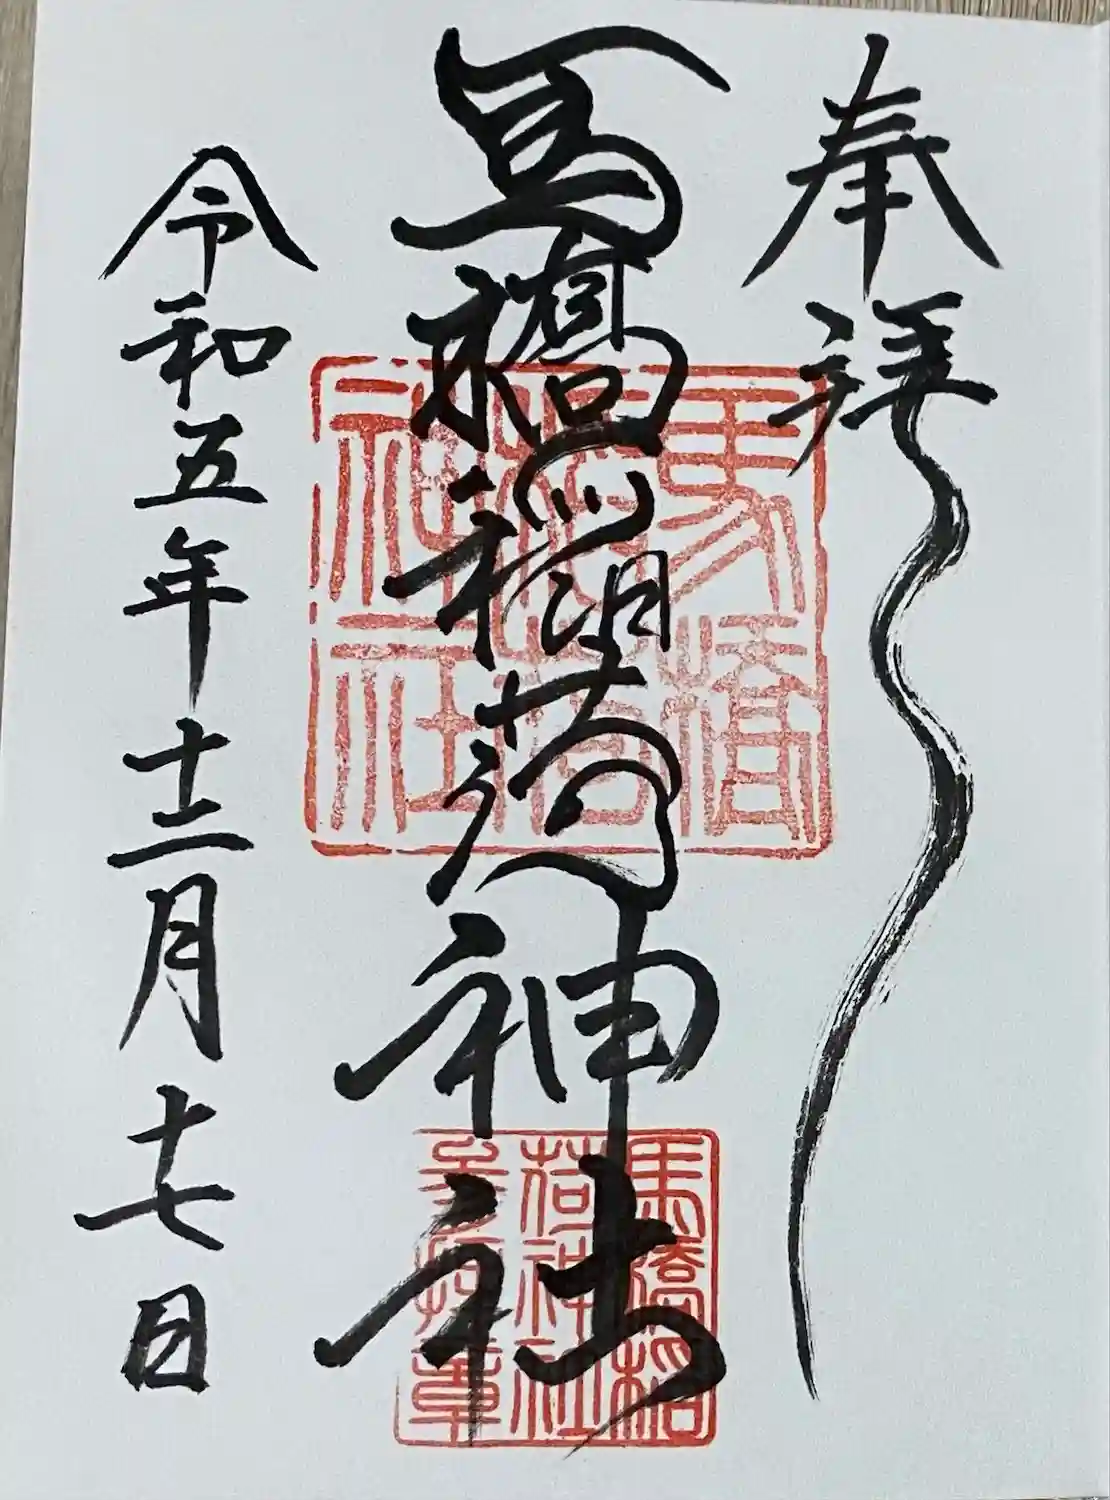 奉拝
馬橋稲荷神社
令和五年十二月十七日
馬橋
稲荷
神社
馬橋稲
荷神社
参拝章